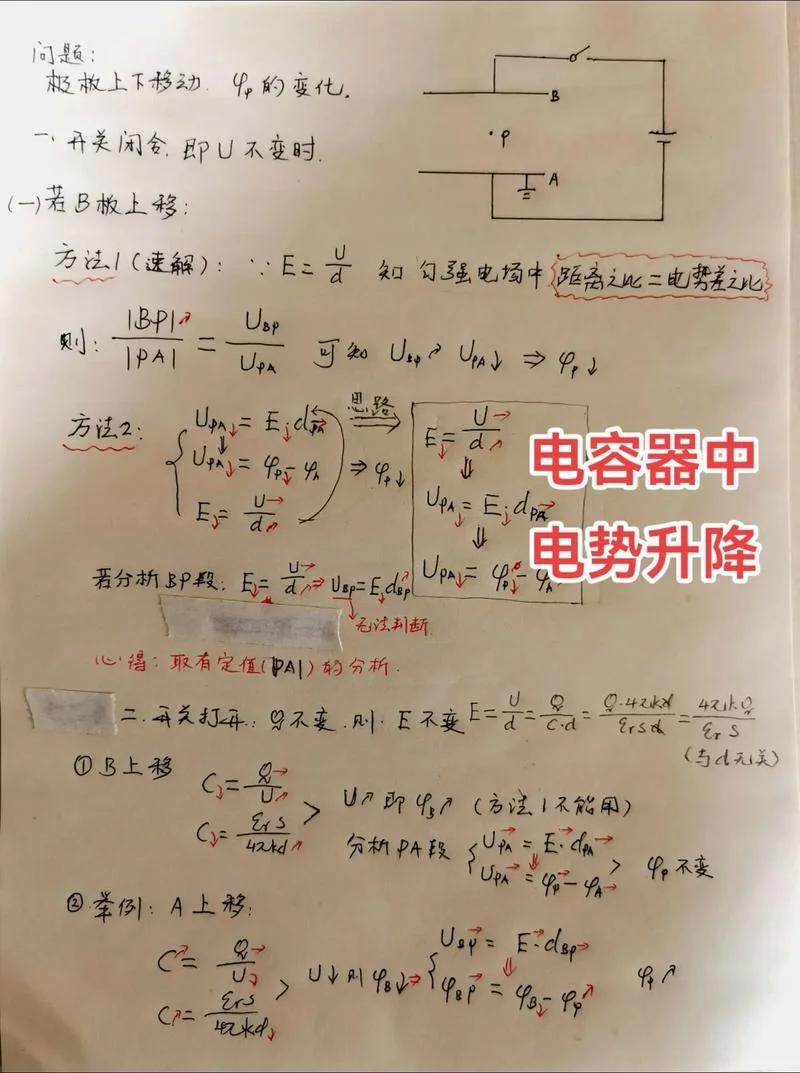 问题:
极板上下移动. φp的变化.
B
·P
A
一、开关闭合,即U不变时.
(一)若B板上移:
方法1(速解): ∵ E=U/d 知匀强电场中 距离之比=电势差之比
则: |BP|↗/|PA| = U_BP/U_PA 可知 U_BP↗ U_PA↓ ⇒ φp↓
方法2: U_PA↓ = E↓·d_PA→
U_PA↓ = φp↓-φA ⇒ φp↓
E↓ = U→/d↗
思路
E↓ = U→/d↗
⇓
U_PA↓ = E↓·d_PA→
⇓
U_PA↓ = φp↓-φA
电容器中
电势升降
若分析BP段: E↓ = U→/d↗ ⇒ U_BP = E↓d_BP↗
无法判断
心得: 取有定值(|PA|)的分析.
二、开关打开: Q不变.则.E不变 E=U/d=Q/C·d=Q·4πkd/εrSd=4πkQ/εrS
(与d无关)
① B上移
C↓ = Q→/U↗
C↓ = εrS/4πkd↗
> U↗即φB↗ (方法1不能用)
分析PA段 U_PA→ = E→·d_PA→
U_PA→ = φp→-φA→ > φp不变
② 举例: A上移:
C↗ = Q→/U↓
C↗ = εrS/4πkd↓
> U↓则φB↓ ⇒ U_BP→ = E→·d_BP→
φ_BP→ = φB↓-φp↗ φp↗